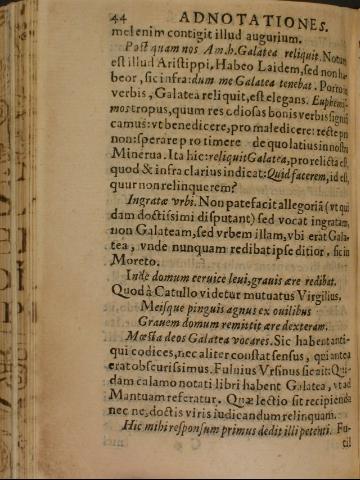 44 ADNOTATIONES.
mel enim contigit illud augurium.
Post quam nos Am.h. Galatea reliquit. Notum
est illud Aristippi, Habeo Laidem, sed non ha-
beor, sic infra: dum me Galatea tenebat. Porro in
verbis, Galatea reliquit, est elegans. Euphemi-
mos tropus, quum res odiosas bonis verbis signifi
camus: vt benedicere, pro maledicere: recte pro
non: sperare pro timere de quo latius in nostra
Minerua. Ita hic: reliquit Galatea, pro relicta est,
quod & infra clarius indicat: Quid facerem, id est,
quur non relinquerem?
Ingratæ vrbi. Non patefacit allegoriã (vt qui
dam doctissimi disputant) sed vocat ingratam,
non Galateam, sed vrbem illam, vbi erat Gala-
tea, vnde nunquam redibat ipse ditior, sic in
Moreto.
Inde domum ceruice leui, grauis ære redibat.
Quod à Catullo videtur mutuatus Virgilius,
Meisque pinguis agnus ex ouilibus
Grauem domum remittit ære dexteram.
Mœsta deos Galatea vocares. Sic habent anti-
qui codices, nec aliter constat sensus, qui antea
erat obscurissimus. Fuluius Vrsinus sic ait: Qui-
dam calamo notati libri habent Galatea, vt ad
Mantuam referatur. Quæ lectio sit recipienda
nec ne, doctis viris iudicandum relinquam.
Hic mihi responsum primus dedit illi petenti. Fu-
til